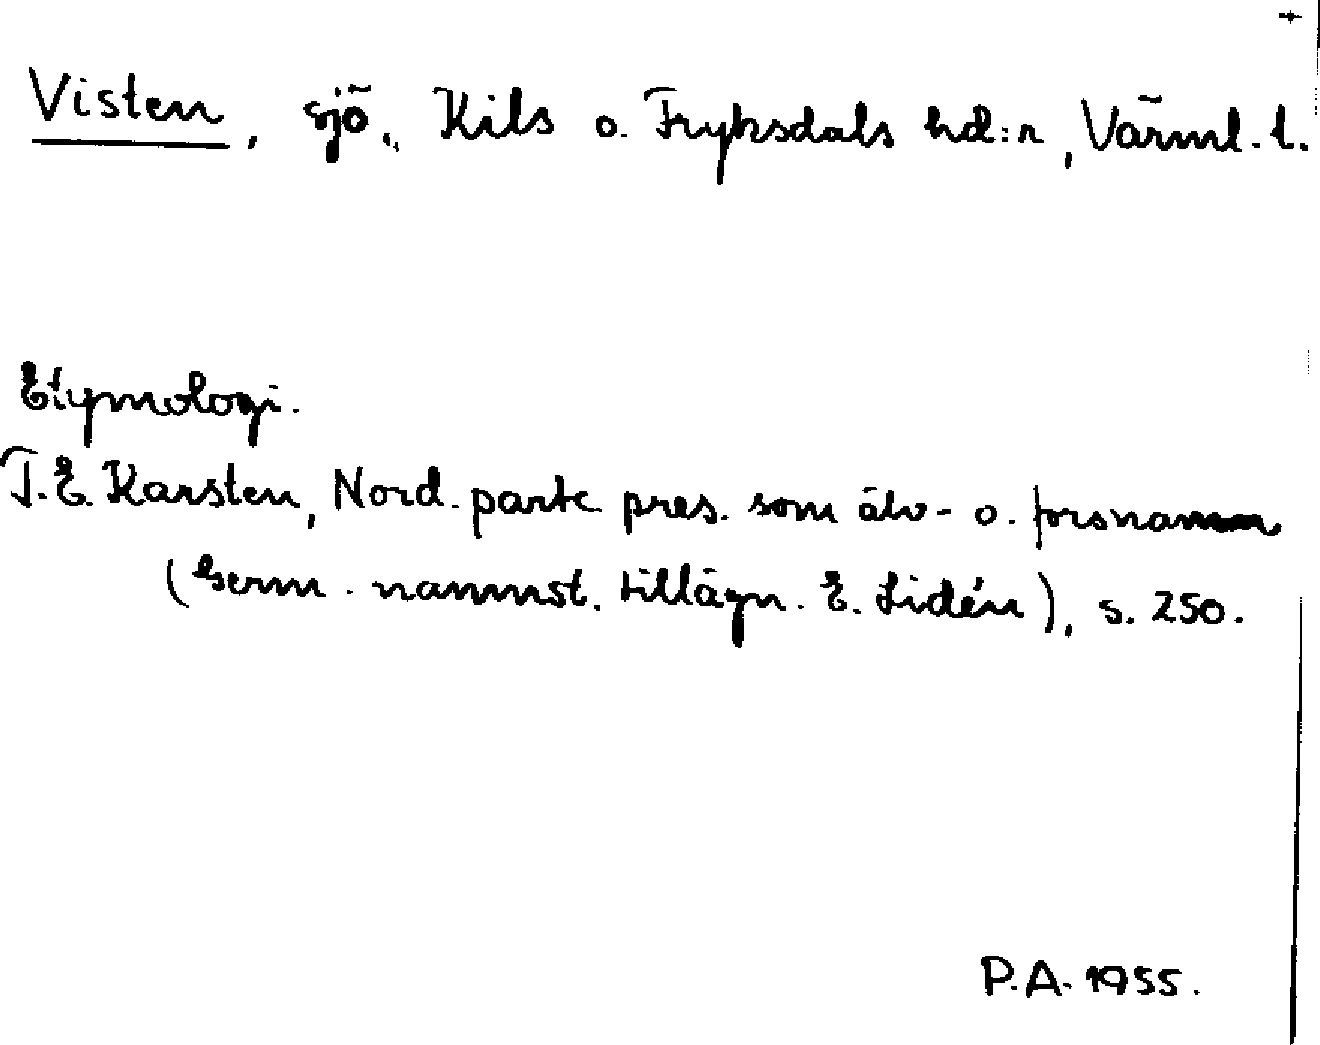 Visten, sjö, Kils o. Fryksdals hd:r, Värml. l.
Etymologi.
T. E. Karsten, Nord. partc. pres. som älv- o. forsnamn
(Germ. namnst. tillägn. E. Lidén), s. 250.
P.A. 1955.